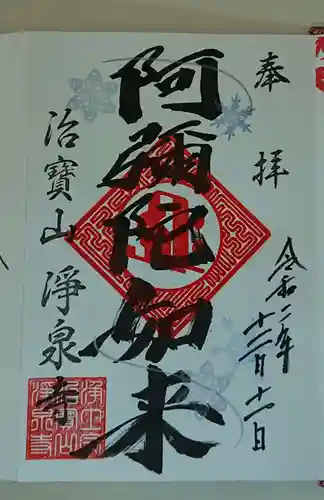 奉拝
令和二年
十二月十一日
阿彌陀如来
治寶山
淨泉寺